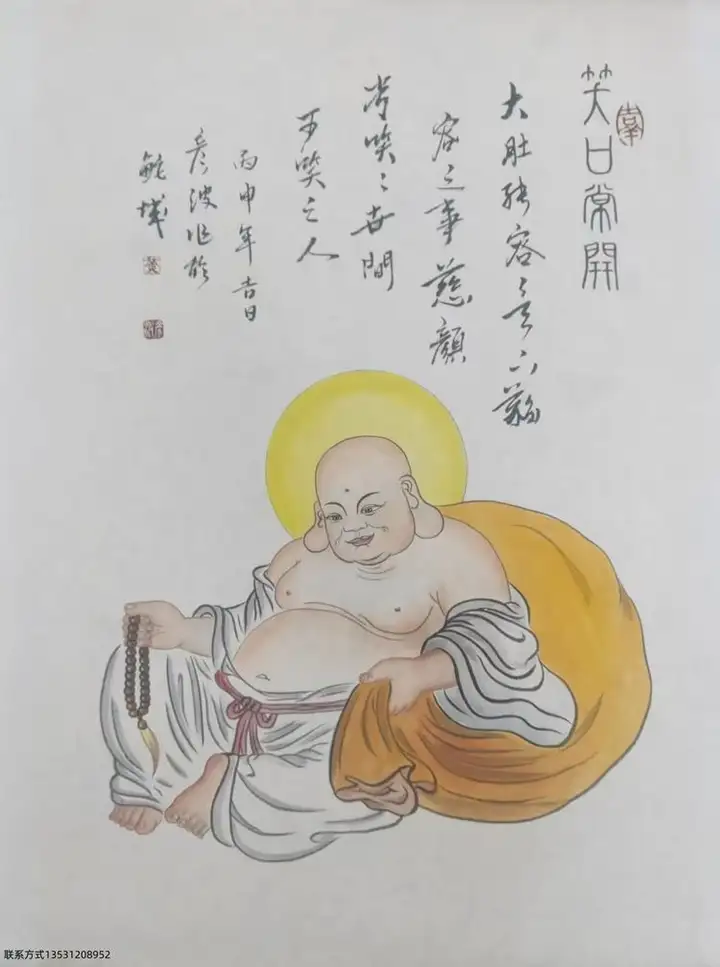 笑口常開
大肚能容々天下難
容之事慈顏
常笑々世間
可笑之人
丙申年吉日
彥波作於
鮀城
联系方式13531208952